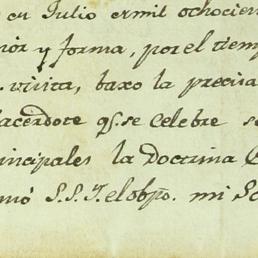 en Julio de mil ochocien
nor y forma, por el tiemp
visita, baxo la precisa
acerdote qe. se celebre se
incipales la Doctrina C
mó S.S.Y. el obpo. mi Se